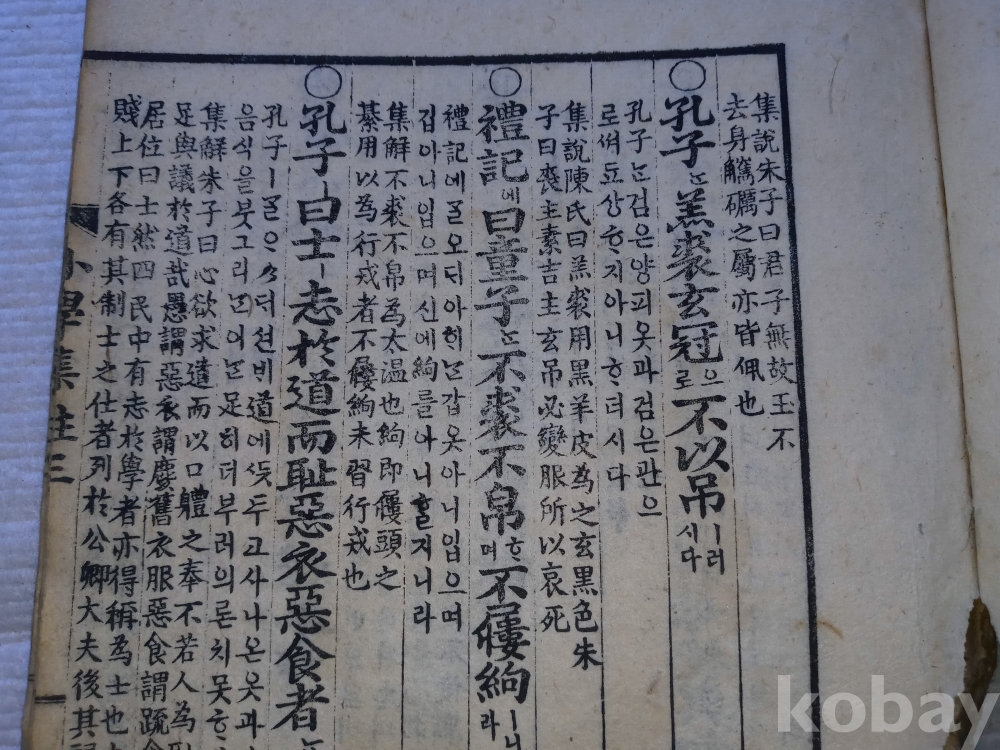 集說朱子曰君子無故玉不
去身觿礪之屬亦皆佩也
○孔子ᄂᆞᆫ羔裘玄冠으로不以弔ㅣ러시다
孔子ᄂᆞᆫ검은양피옷과검은관으
로ᄡᅧ됴상ᄒᆞ지아니ᄒᆞ더시다
集說陳氏曰羔裘用黑羊皮為之玄黑色朱
子曰喪主素吉主玄吊必變服所以哀死
○禮記에曰童子ᄂᆞᆫ不裘不帛ᄒᆞ며不屨絇ㅣ니라
禮記에ᄀᆞᆯ오ᄃᆡ아ᄒᆡᄂᆞᆫ갑옷아니입으며
깁아니입으며신에絇를아니ᄒᆞᆯ지니라
集解不裘不帛為太温也絇即屨頭之
綦用以為行戒者不屨絇未習行戒也
○孔子ㅣ曰士ㅣ志於道而恥惡衣惡食者
孔子ㅣᄀᆞᆯᄋᆞ샤ᄃᆡ션ᄇᆡ道에ᄯᅳᆺ두고사나온옷과
음식을붓그리ᄂᆞᆫ이ᄂᆞᆫ足히더부러의론치못ᄒᆞ
集解朱子曰心欲求道而以口體之奉不若人為
足與議於道哉愚謂惡衣謂麤舊衣服惡食謂疏食
居位曰士然四民中有志於學者亦得稱為士也
賤上下各有其制士之仕者列於公卿大夫後其
小學集註三
kobay